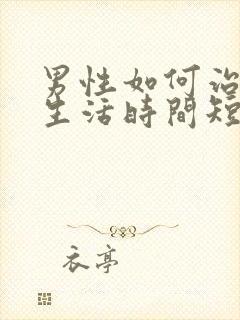 男性如何治
生活時間短
衣亭